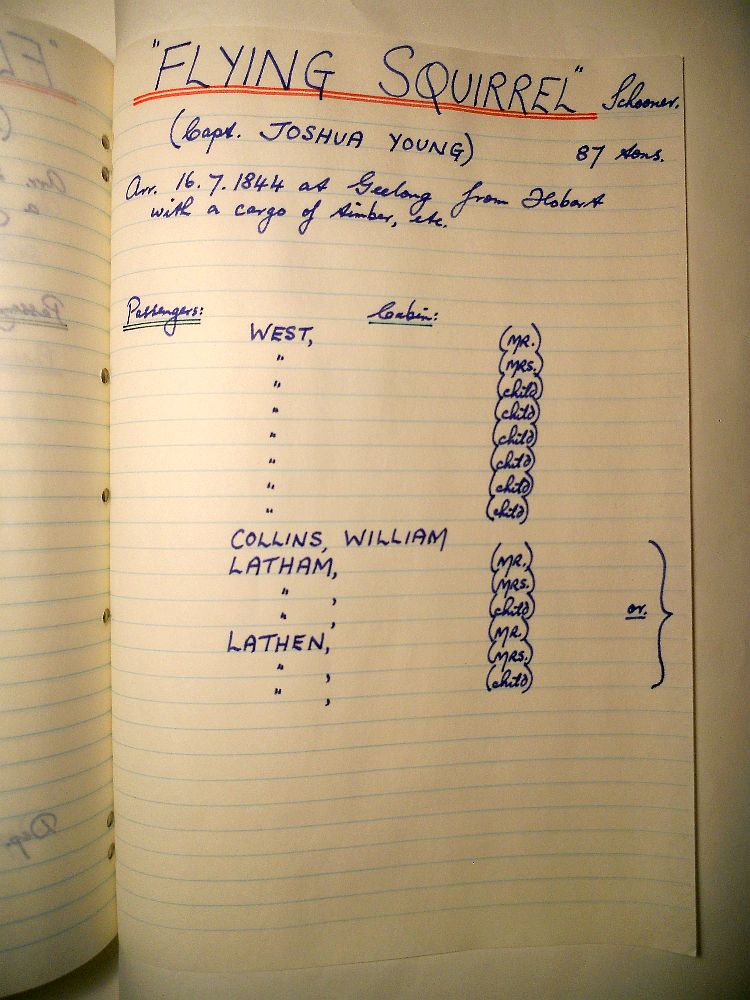 "FLYING SQUIRREL" Schooner.
(Capt. JOSHUA YOUNG) 87 tons.
Arr. 16.7.1844 at Geelong from Hobart
with a cargo of timber, etc.
Passengers: Cabin:
WEST, (MR.)
" (MRS.)
" (child)
" (child)
" (child)
" (child)
" (child)
" (child)
COLLINS, WILLIAM
LATHAM, (MR.)
" , (MRS.)
" , (child) or.
LATHEN, (MR.)
" , (MRS.)
" , (child)